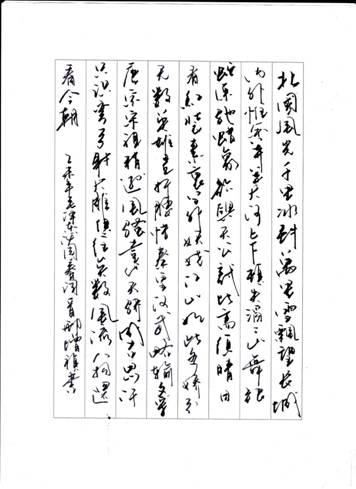 北国风光千里冰封万里雪飘望长城
内外惟余莽莽大河上下顿失滔滔山舞银
蛇原驰蜡象欲与天公试比高须晴日
看红装素裹分外妖娆江山如此多娇引
无数英雄竞折腰惜秦皇汉武略输文采
唐宗宋祖稍逊风骚一代天骄成吉思汗
只识弯弓射大雕俱往矣数风流人物还
看今朝 乙未年毛泽东沁园春词 书